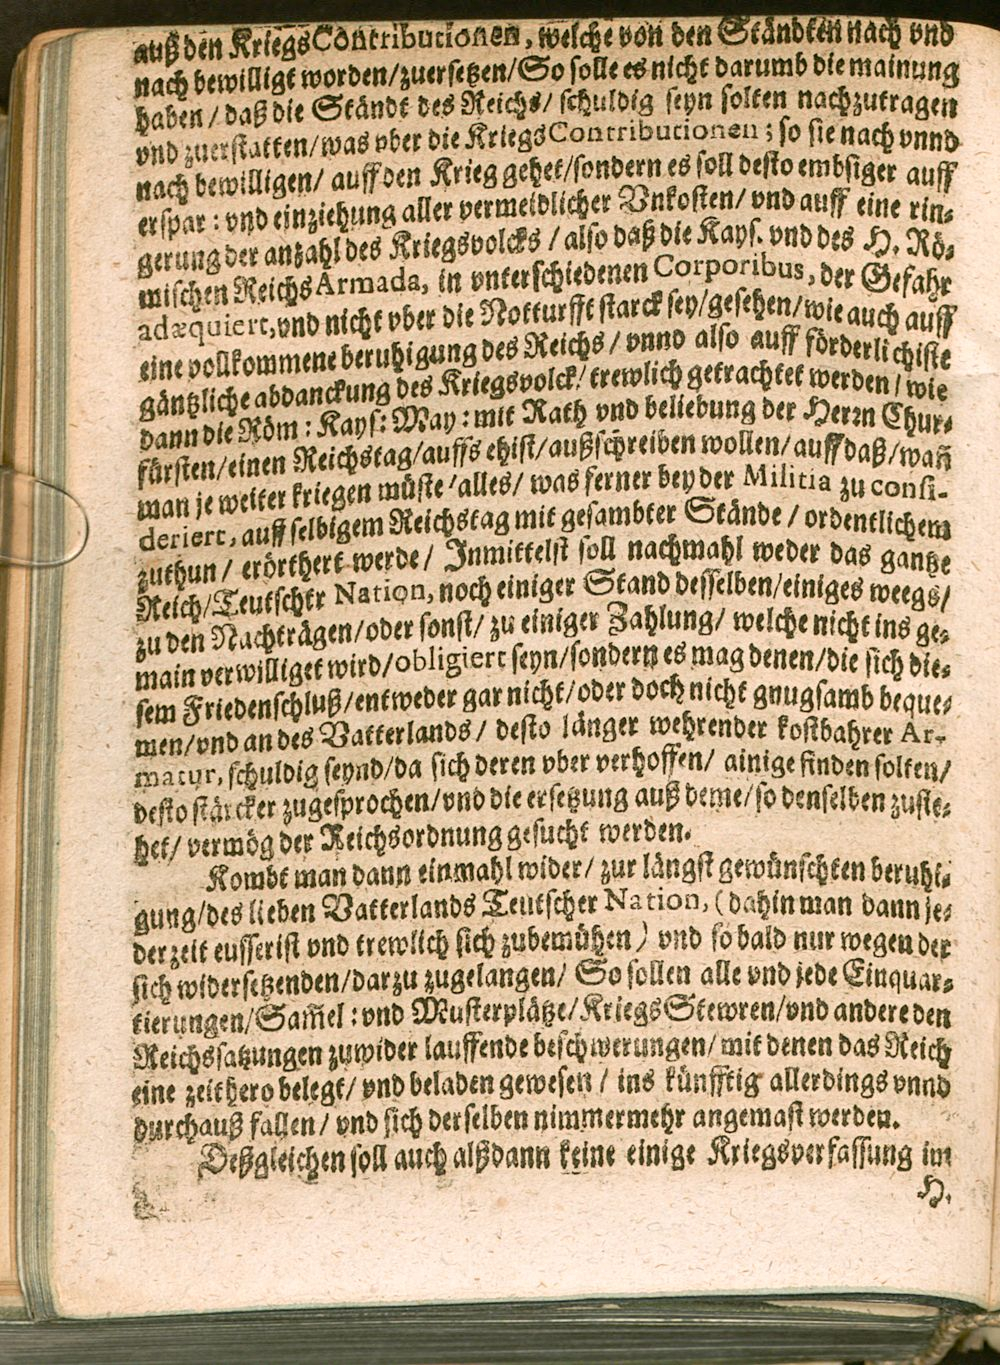 auß den KriegsContributionen, welche von den Ständten nach vnd
nach bewilligt worden/zuersetzen/So solle es nicht darumb die mainung
haben / daß die Ständt des Reichs/ schuldig seyn solten nachzutragen
vnd zuerstatten/was vber die KriegsContributionen; so sie nach vnnd
nach bewilligen/ auff den Krieg gehet/sondern es soll desto embsiger auff
erspar: vnd einziehung aller vermeidlicher Vnkosten/ vnd auff eine rin-
gerung der anzahl des Kriegsvolcks / also daß die Kays. vnd des H. Rö-
mischen Reichs Armada, in vnterschiedenen Corporibus, der Gefahr
adæquiert, vnd nicht vber die Notturfft starck sey/gesehen/wie auch auff
eine vollkommene beruhigung des Reichs / vnnd also auff förderlichiste
gäntzliche abdanckung des Kriegsvolck/ trewlich getrachtet werden / wie
dann die Röm: Kays: May: mit Rath vnd beliebung der Herrn Chur-
fürsten/einen Reichstag/auffs ehist/außschreiben wollen/auff daß/wañ
man je weiter kriegen müste/alles/ was ferner bey der Militia zu consi-
deriert, auff selbigem Reichstag mit gesambter Stände / ordentlichem
zuthun / erörthert werde / Inmittelst soll nachmahl weder das gantze
Reich/Teutschtr Nation, noch einiger Stand desselben/einiges weegs/
zu den Nachträgen/oder sonst/ zu einiger Zahlung/ welche nicht ins ge-
main verwilliget wird/obligiert seyn/sondern es mag denen/die sich die-
sem Friedenschluß/entweder gar nicht/oder doch nicht gnugsamb beque-
men/vnd an des Vatterlands / desto länger wehrender kostbahrer Ar-
matur, schuldig seynd/da sich deren vber verhoffen/ ainige finden solten/
desto stärcker zugesprochen/vnd die ersetzung auß deme/so denselben zuste-
het/ vermög der Reichsordnung gesucht werden.
Kombt man dann einmahl wider/ zur längst gewünschten beruhi-
gung/des lieben Vatterlands Teutscher Nation, (dahin man dann je-
derzeit eusserist vnd trewlich sich zubemühen) vnd so bald nur wegen der
sich widersetzenden/darzu zugelangen/ So sollen alle vnd jede Einquar-
tierungen/Sam̃el: vnd Musterplätze/Kriegs Stewren/vnd andere den
Reichssatzungen zuwider lauffende beschwerungen/mit denen das Reich
eine zeithero belegt/ vnd beladen gewesen / ins künfftig allerdings vnnd
durchauß fallen / vnd sich derselben nimmermehr angemast werden.
Deßgleichen soll auch alßdann keine einige Kriegsverfassung im
H.